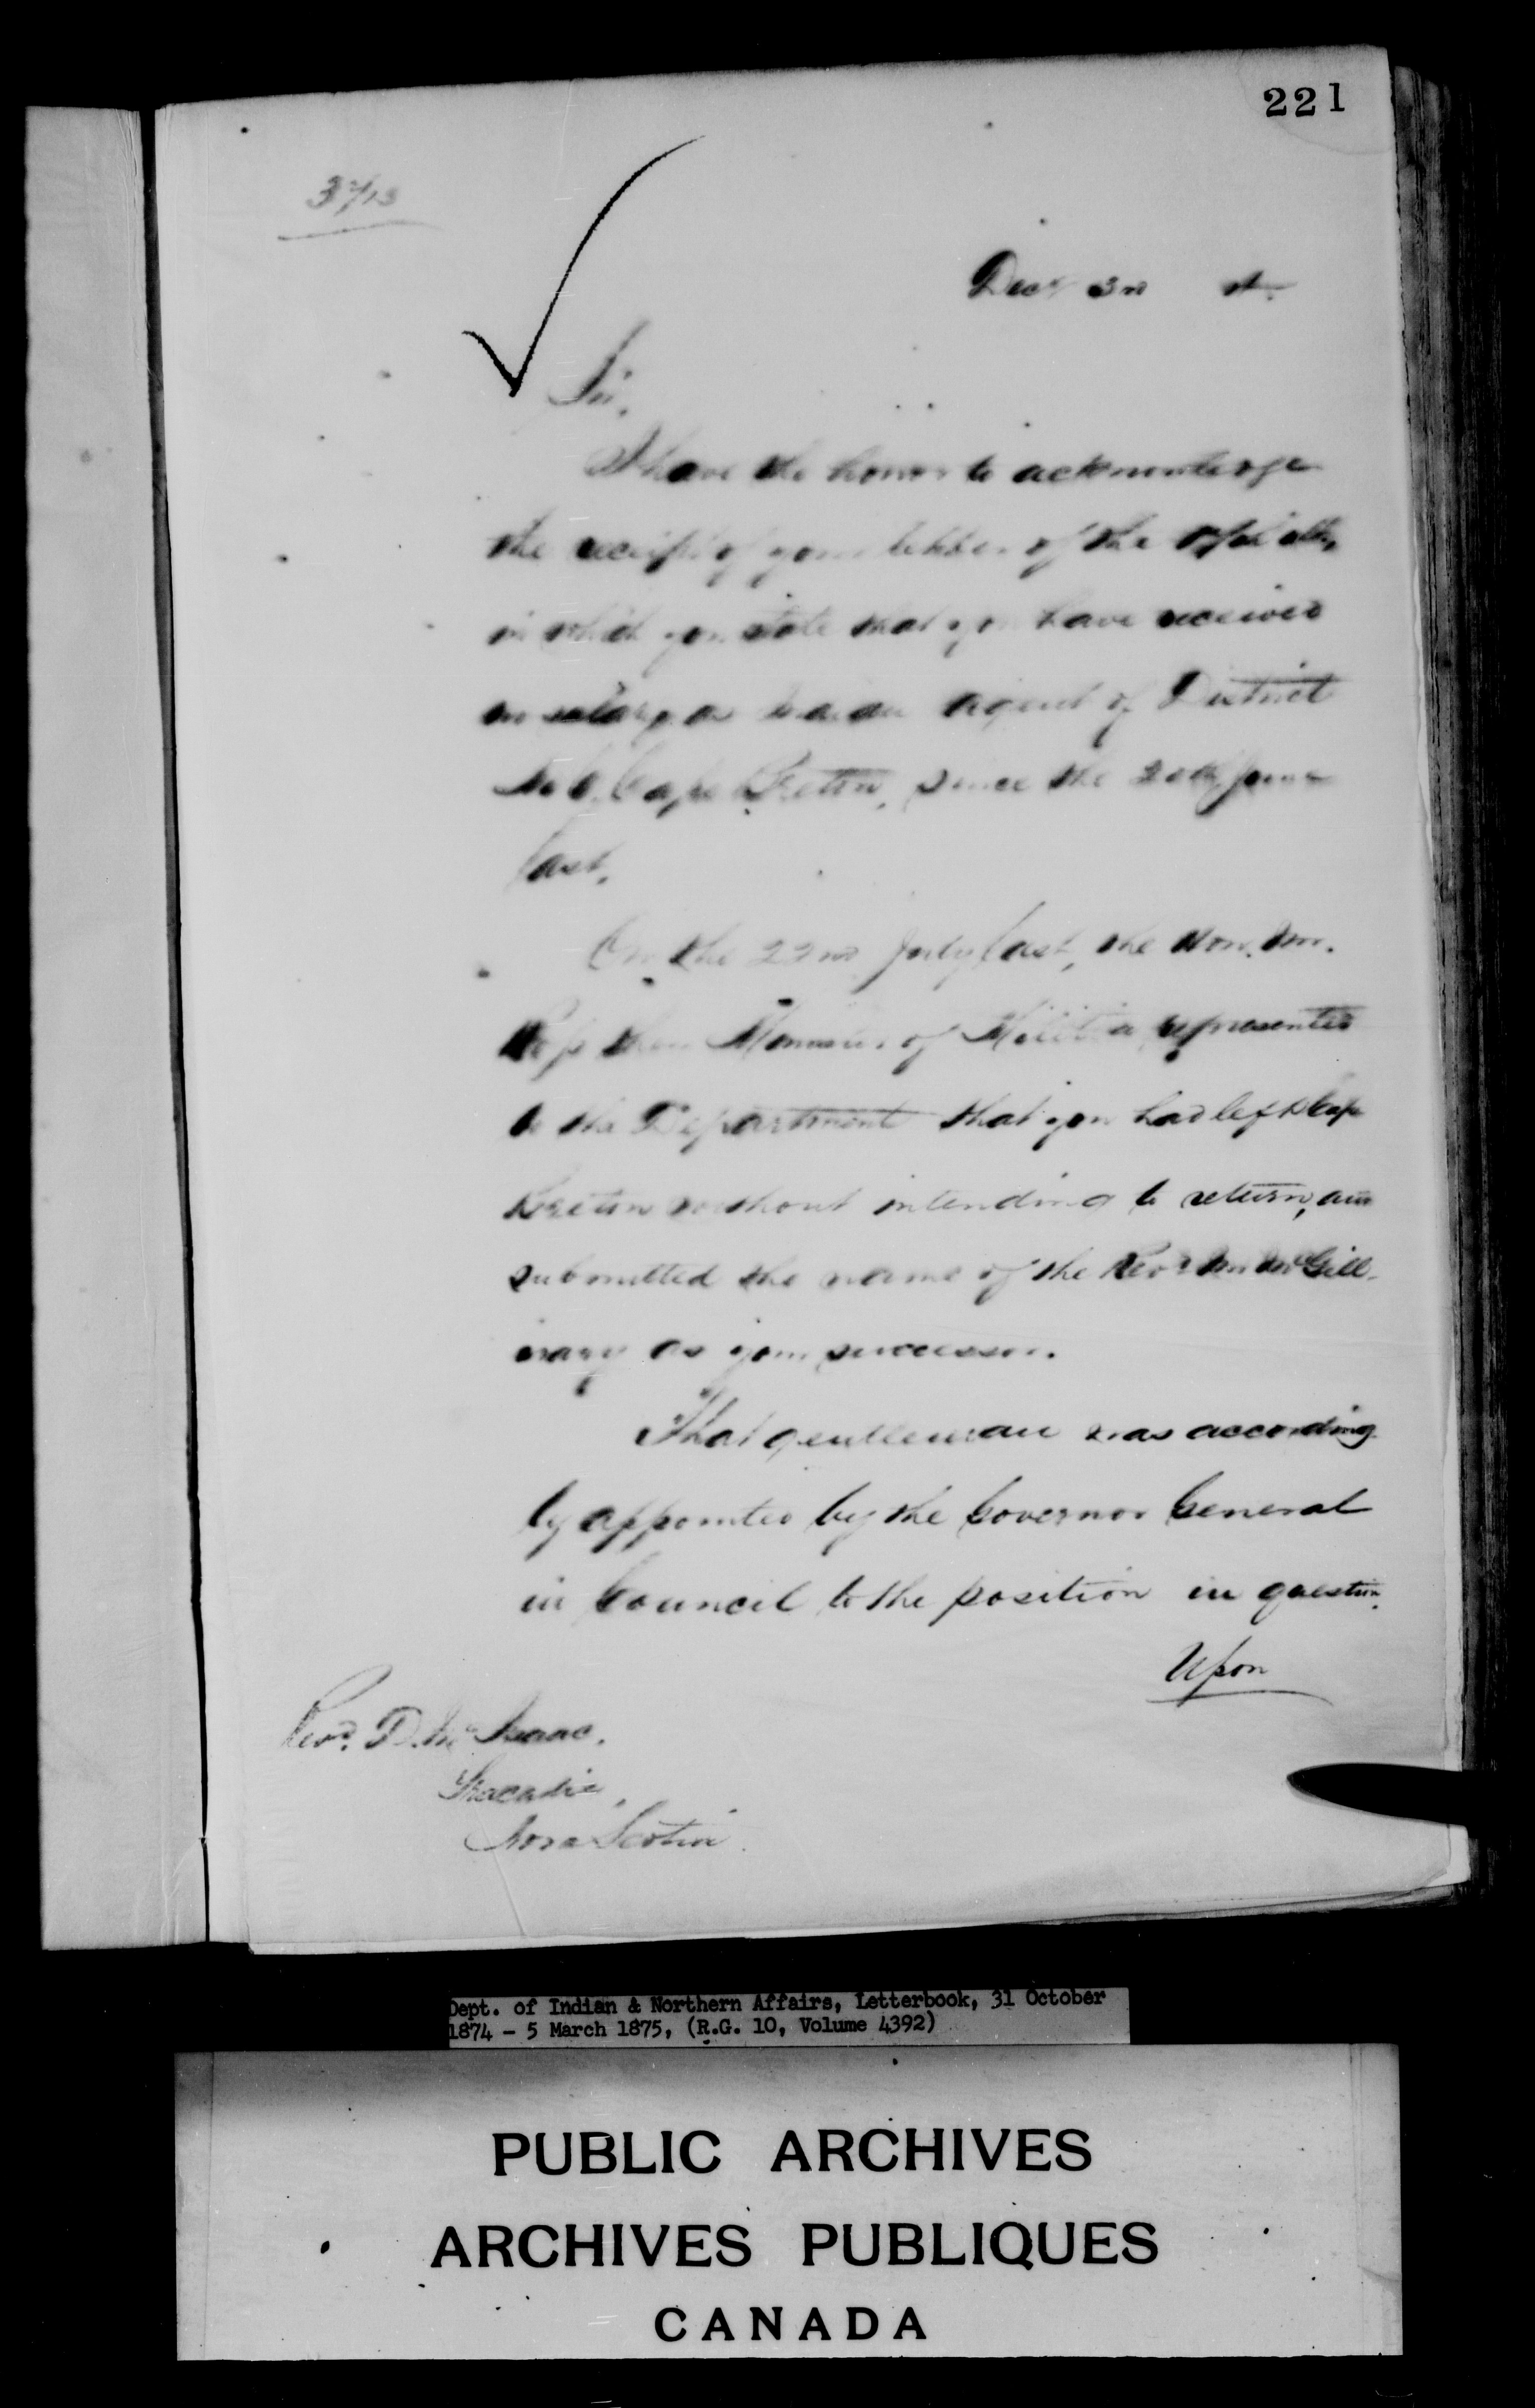 221
Decr 3rd
Sir,
I have the honor to acknowledge
the receipt of your letter of the ulto,
in which you state that you have received
no salary as Indian agent of District
No 6. Cape Breton, since the 20th June
last.
On the 22nd July last, the Hon. Mr.
Ross then Minister of Militia represented
to the Department that you had left Cape
Breton without intending to return, and
submitted the name of the Revd Mr McGill-
ivray as your successor.
That gentleman was according-
ly appointed by the Governor General
in Council to the position in question.
Upon
Revd. D. McIsaac.
Tracadie,
Nova Scotia.
Dept. of Indian & Northern Affairs, Letterbook, 31 October
1874 - 5 March 1875, (R.G. 10, Volume 4392)
PUBLIC ARCHIVES
ARCHIVES PUBLIQUES
CANADA